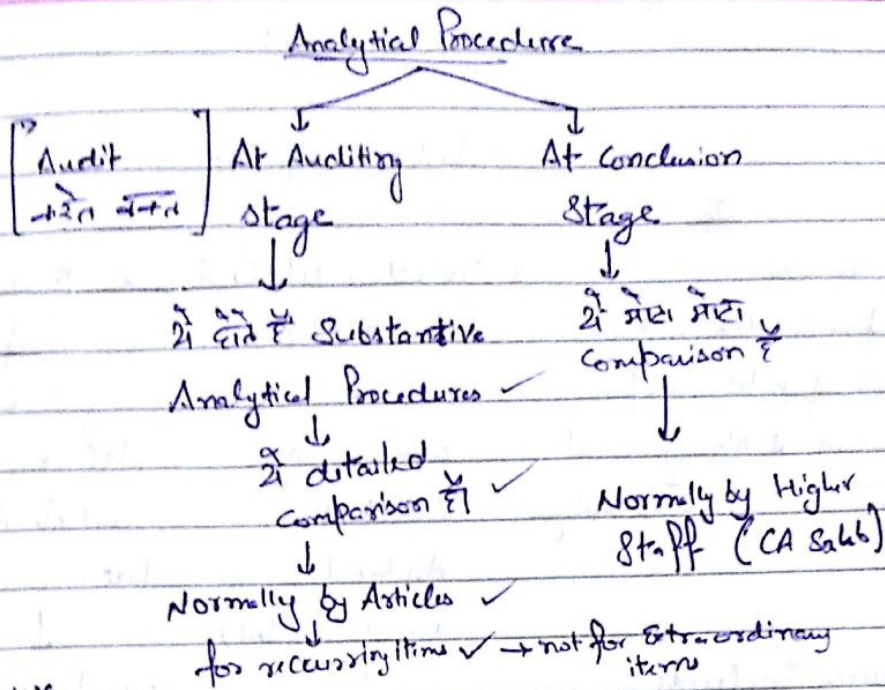 Analytical Procedure
Audit
करते वक्त
At Auditing
stage
ये होते हैं Substantive
Analytical Procedures ✓
ये detailed
Comparison है। ✓
Normally by Articles ✓
for recurring items ✓ → not for Extraordinary
items
At Conclusion
Stage
ये मोटा मोटा
Comparison है
Normally by Higher
Staff (CA Saheb)